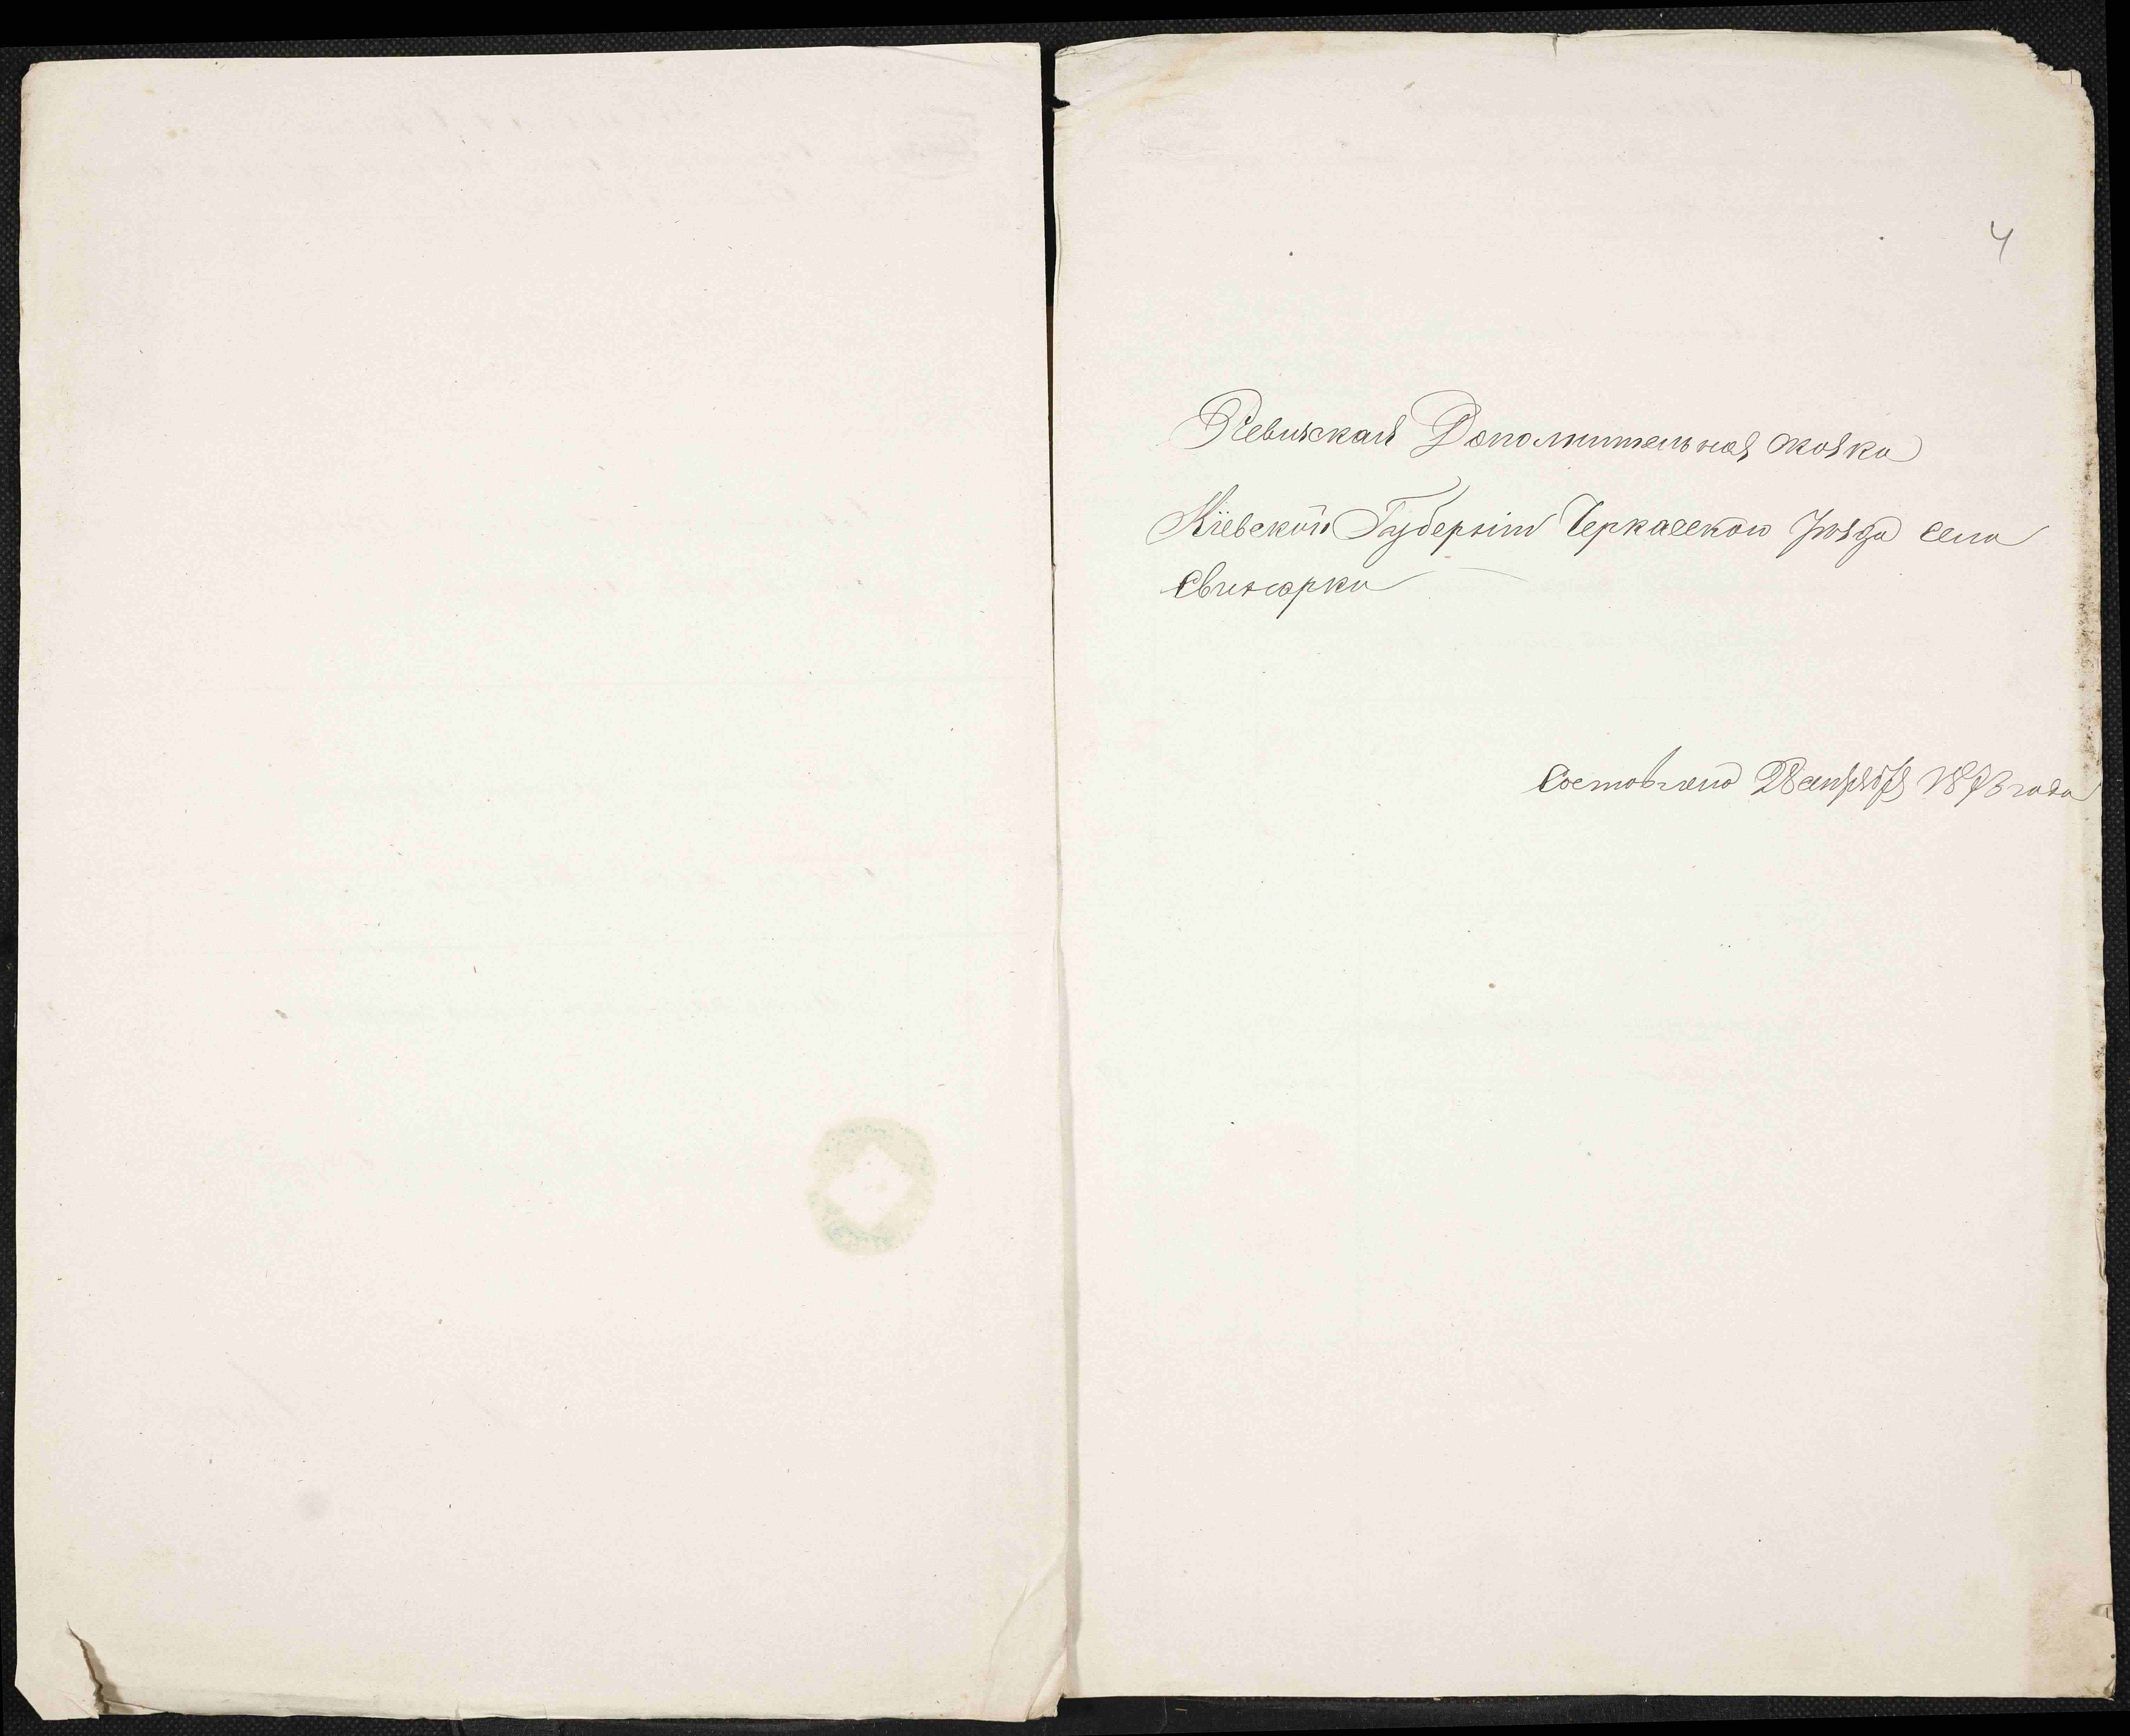 4
Ревизская Дополнительная сказка
Кіевской Губерніи Черкасского Уѣзда села
Свинарки
Составлено Декабря 1873 года